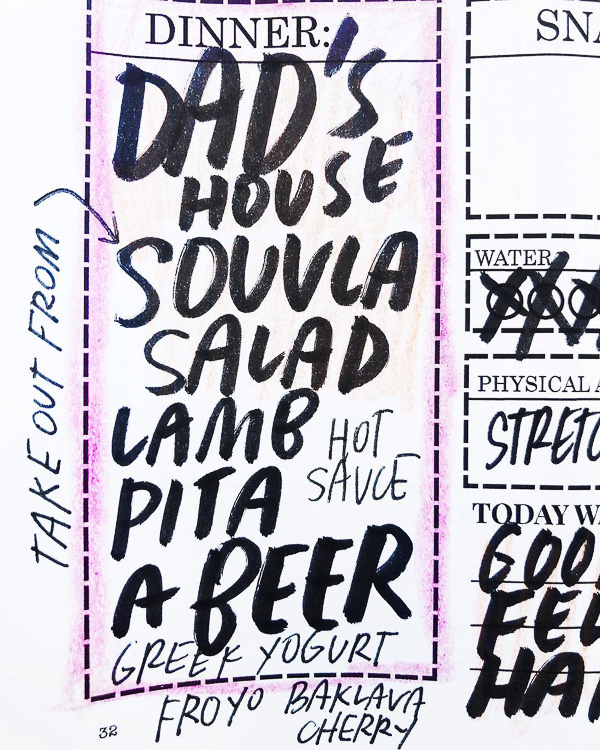 DINNER:
DAD'S
HOUSE
TAKE OUT FROM
SOUVLA
SALAD
LAMB
HOT
SAUCE
PITA
A BEER
GREEK YOGURT
FROYO BAKLAVA
CHERRY
32
SNA
WATER
PHYSICAL A
STRETC
TODAY WA
GOO
FEL
HA